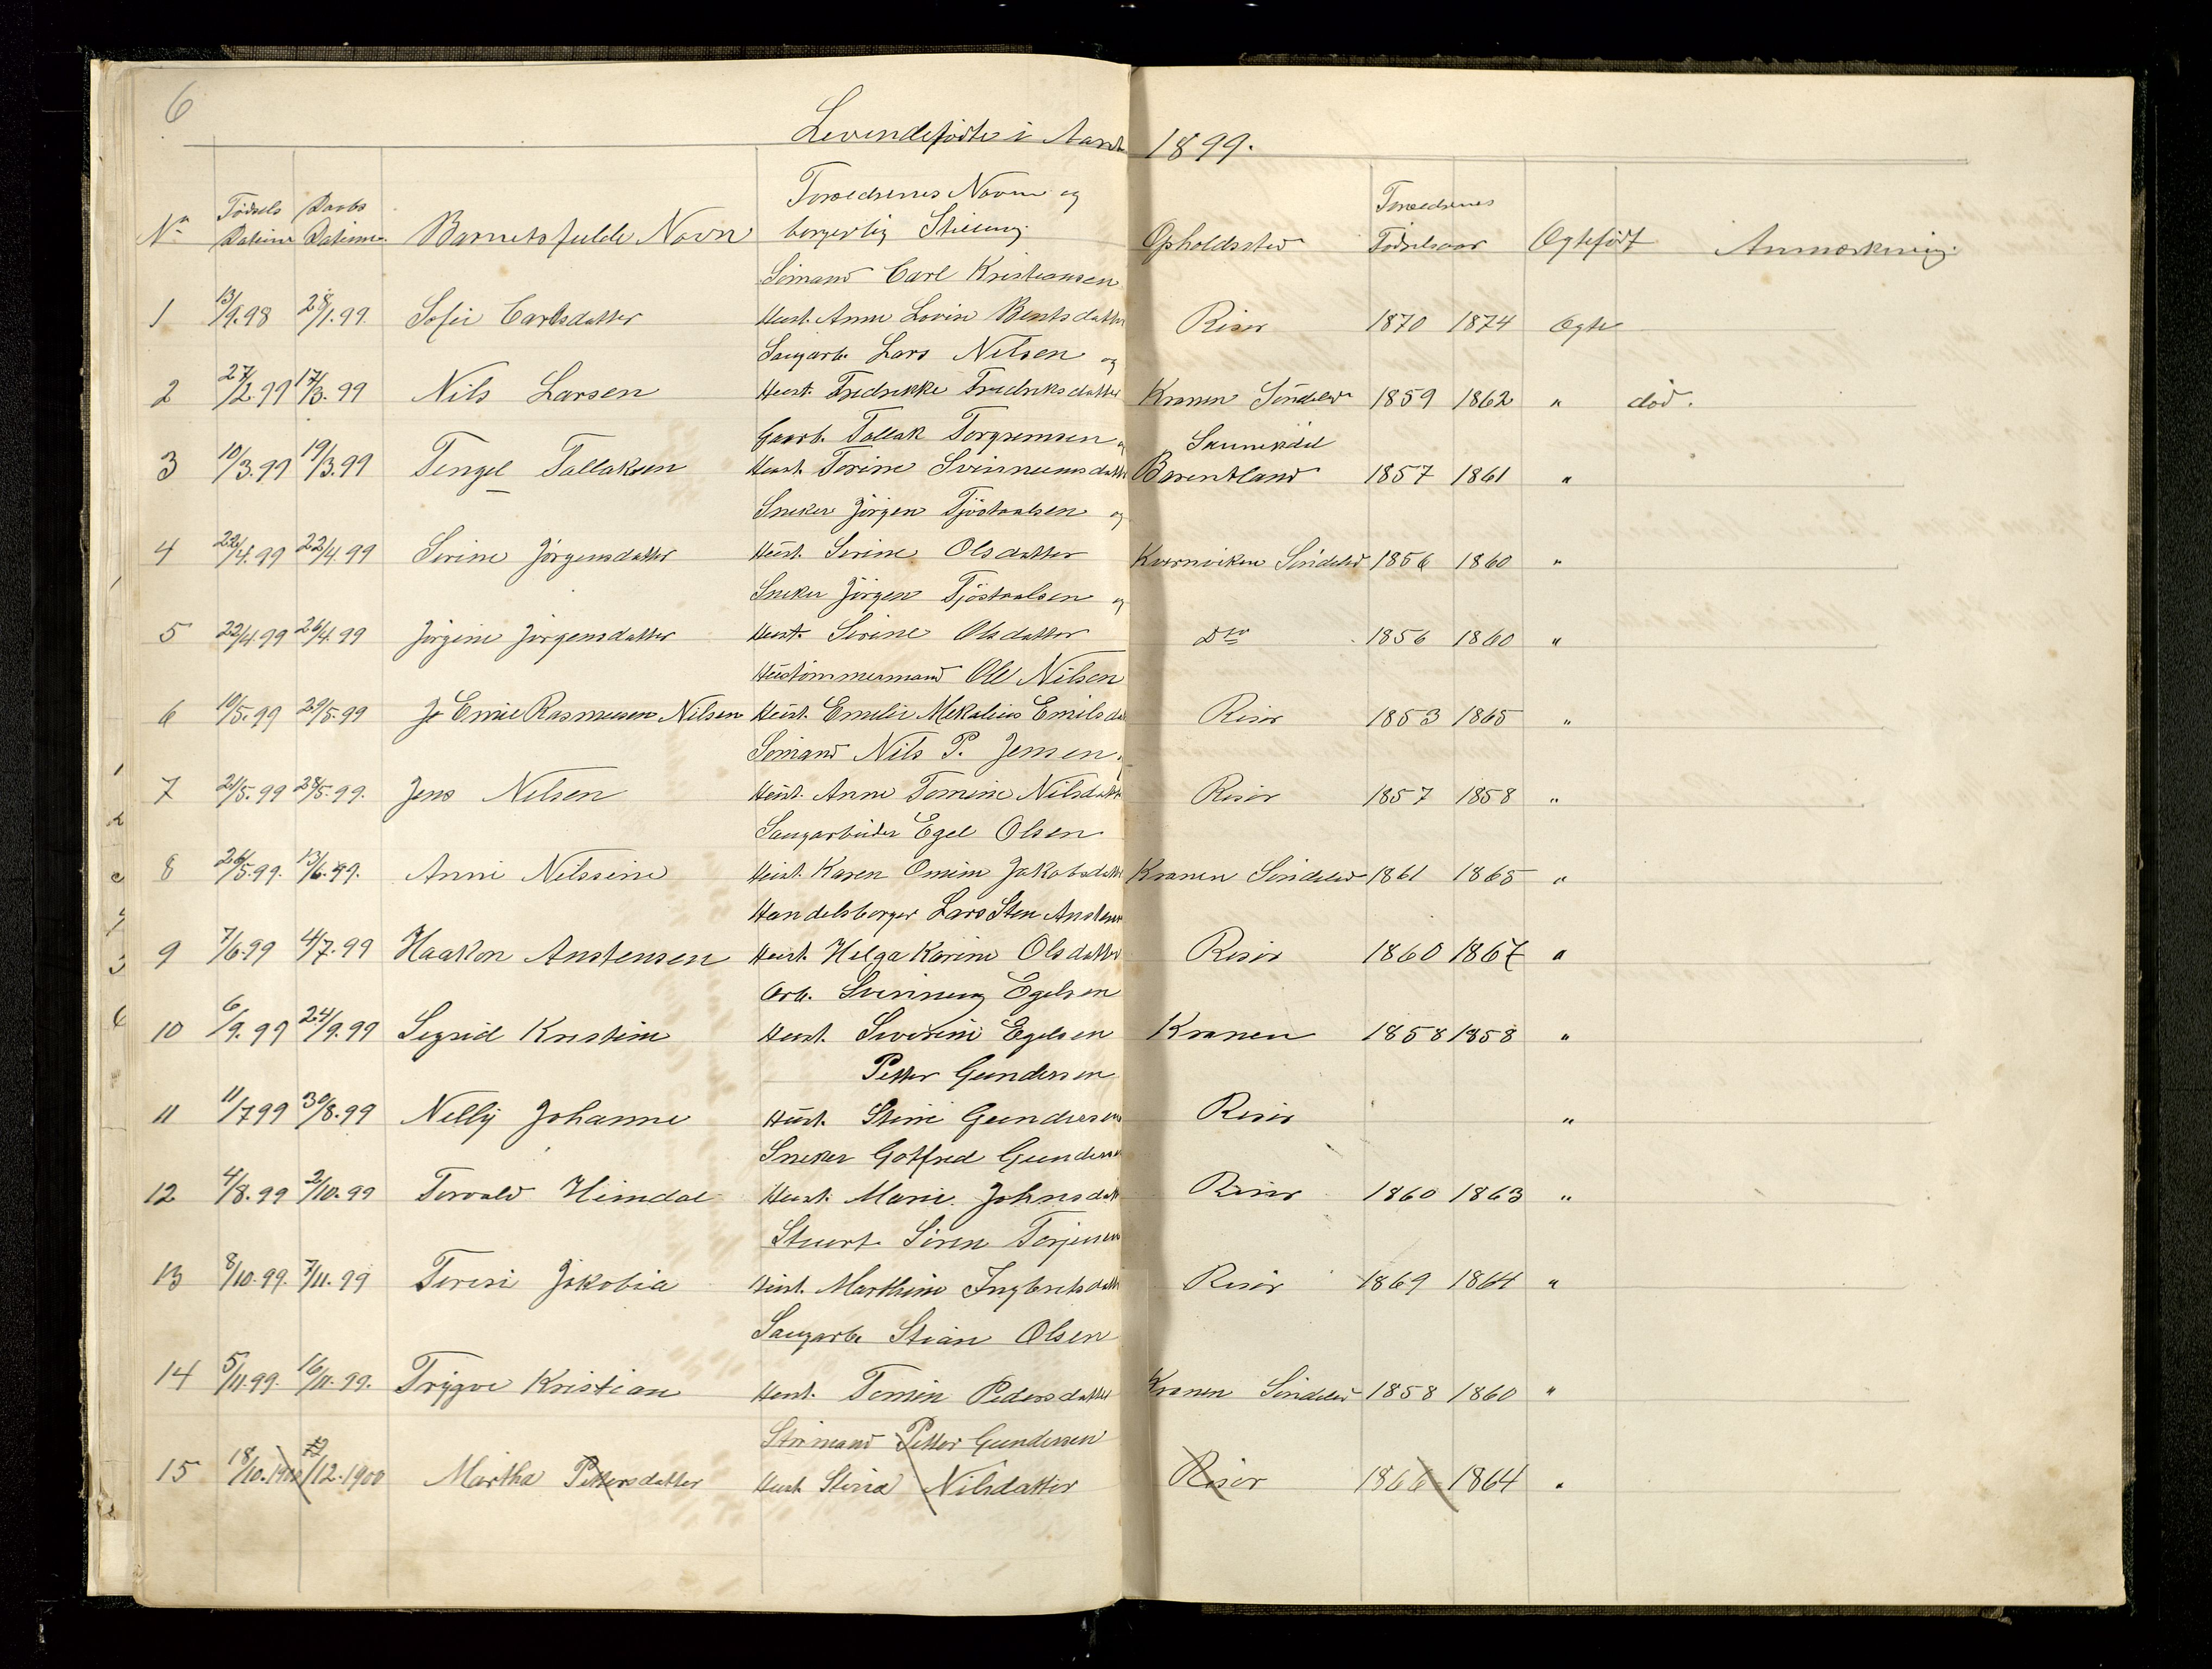 6
Levendefödte i Aaret 1899.
No Födsels Datum Daabs Datum Barnets fulde Navn Forældrenes Navn og borgerlig Stilling Opholdssted Forældrenes Födselsaar Ægtefödt Anmærkning
Sömand Carl Kristiansen
1 13/9.98 28/1.99 Sofie Carlsdatter Hust. Anne Lovise Bentsdatter Risör 1870 1874 Ægte
Saugarb. Lars Nilsen og
2 27/2.99 17/3.99 Nils Larsen Hust. Fredrikke Fredriksdatter Kranen Söndeled 1859 1862 " död.
Gaarb. Tallak Torgrimsen og
3 10/3.99 19/3.99 Tengel Tallaksen Hust. Torine Svinnumsdatter Barentland 1857 1861 "
Sneker Jörgen Tjöstolsen og
4 22/4.99 22/4.99 Serine Jörgensdatter Hust. Serine Olsdatter Kvernviken Söndeled 1856 1860 "
Sneker Jörgen Tjöstolsen og
5 22/4.99 26/4.99 Jörgine Jörgensdatter Hust. Serine Olsdatter Dto 1856 1860 "
Hustömmermand Ole Nilsen
6 10/5.99 29/5.99 Emil Rasmusen Nilsen Hust. Emilie Mekaline Emilsdat Risör 1853 1865 "
Sömand Nils P. Jensen
7 21/5.99 28/5.99. Jens Nilsen Hust. Anne Tomine Nilsdatt Risör 1857 1858 "
Saugarbeider Egel Olsen
8 26/5.99. 13/6.99. Anne Nilssine Hust. Karen Omine Jakobsdatt Kranen Söndeled 1861 1865 "
Handelsborger Lars Sten Anstensen
9 7/6.99 4/7.99 Haakon Anstensen Hust. Helga Karine Olsdatter Risör 1860 1867 "
Arb. Svinnung Egelsen
10 6/9.99 24/9.99 Sigrid Kristine Hust. Severine Egelsen Kranen 1858 1858 "
Petter Gundersen
11 11/7 99 30/8.99 Nelly Johanne Hust. Stine Gundersen Risör "
Sneker Gotfred Gundersen
12 4/8.99 2/10.99 Torvald Heimdal Hust. Marie Johnsdatt Risör 1860 1863 "
Stuert Sören Torjusen
13 8/10.99. 7/11.99 Terese Jakobia Hust. Marthine Ingbretsdatt Risör 1869 1864 "
Saugarb. Stian Olsen
14 5/11.99. 16/11.99. Trygve Kristian Hust. Tomine Pedersdatter Kranen Söndeled 1858 1860 "
Stirmand Petter Gundersen
15 18/10.1900 /12.1900 Martha Pettersdatter Hust Stina Nilsdatter Risör 1866 1864 "